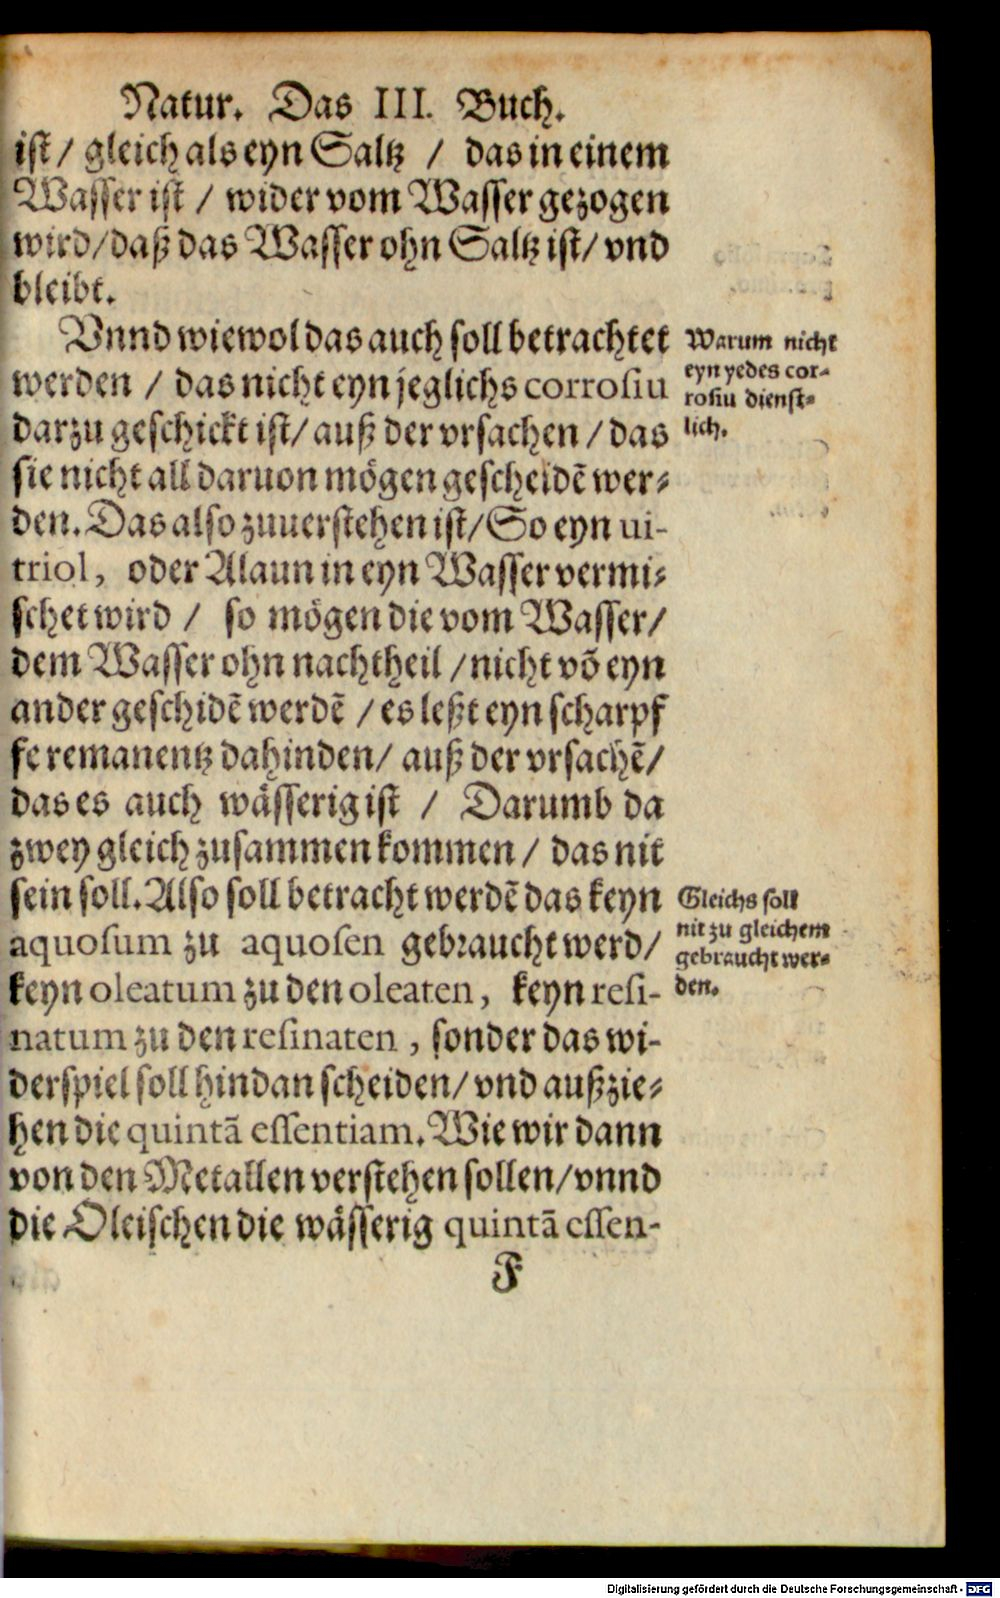 Natur. Das III. Buch.
ist / gleich als eyn Saltz / das in einem
Wasser ist / wider vom Wasser gezogen
wird / daß das Wasser ohn Saltz ist / vnd
bleibt.
Vnnd wiewol das auch soll betrachtet
werden / das nicht eyn jeglichs corrosiu
darzu geschickt ist / auß der vrsachen / das
sie nicht all daruon mögen gescheidē wer⸗
den. Das also zuuerstehen ist / So eyn ui-
triol, oder Alaun in eyn Wasser vermi⸗
schet wird / so mögen die vom Wasser /
dem Wasser ohn nachtheil / nicht võ eyn
ander geschidē werdē / es leßt eyn scharpf
fe remanentz dahinden / auß der vrsachē /
das es auch wässerig ist / Darumb da
zwey gleich zusammen kommen / das nit
sein soll. Also soll betracht werdē das keyn
aquosum zu aquosen gebraucht werd /
keyn oleatum zu den oleaten, keyn resi-
natum zu den resinaten, sonder das wi-
derspiel soll hindan scheiden / vnd außzie⸗
hen die quintā essentiam. Wie wir dann
von den Metallen verstehen sollen / vnnd
die Oleischen die wässerig quintā essen-
F
Warum nicht
eyn yedes cor⸗
rosiu dienst⸗
lich.
Gleichs soll
nit zu gleichem
gebraucht wer⸗
den.
Digitalisierung gefördert durch die Deutsche Forschungsgemeinschaft - DFG